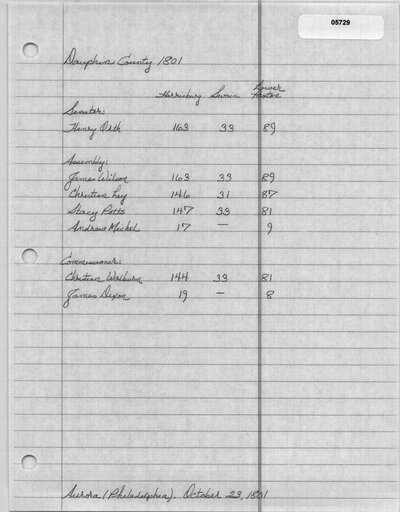 05729
Dauphin County 1801
Harrisburg Swain Lower Paxton
Senator:
Henry Orth 163 33 89
Assembly:
James Wilson 163 33 89
Christian Ley 146 31 87
Stacy Potts 147 33 81
Andrew Meckel 17 — 9
Commissioner:
Christian Walburn 144 33 81
James Dixon 19 — 8
Aurora (Philadelphia). October 23, 1801